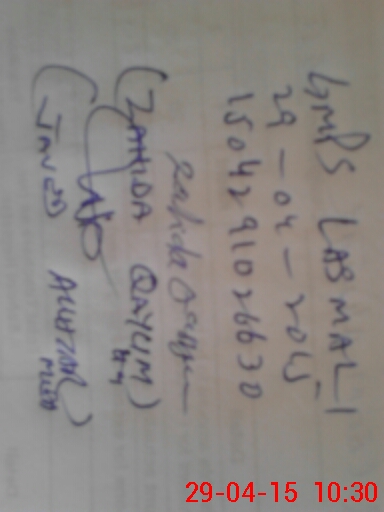 GMPS LASMALI
29-04-2015
1504291026630
Zahida Qayyum
(ZAHIDA QAYYUM)
(JAVED AKHTAR)
29-04-15 10:30